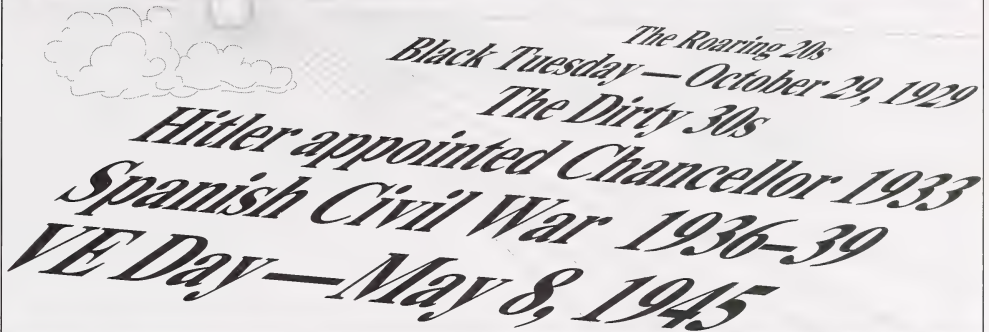 The Roaring 20s
Black Tuesday — October 29, 1929
The Dirty 30s
Hitler appointed Chancellor 1933
Spanish Civil War 1936–39
VE Day—May 8, 1945